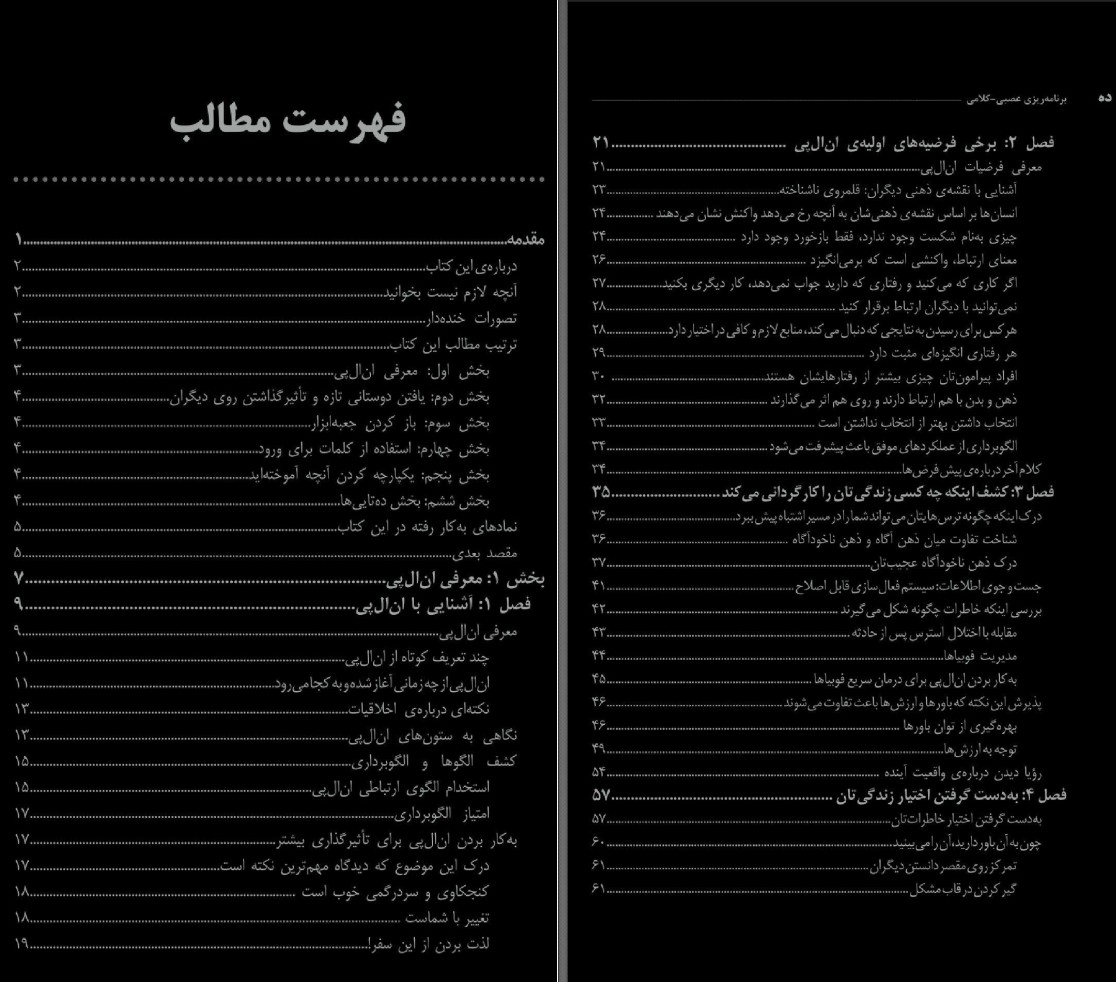 فهرست مطالب
مقدمه....................۱
درباره‌ی این کتاب....................۲
آنچه لازم نیست بخوانید....................۲
تصورات خنده‌دار....................۳
ترتیب مطالب این کتاب....................۳
بخش اول: معرفی ان‌ال‌پی....................۳
بخش دوم: یافتن دوستانی تازه و تأثیرگذاشتن روی دیگران....................۴
بخش سوم: باز کردن جعبه‌ابزار....................۴
بخش چهارم: استفاده از کلمات برای ورود....................۴
بخش پنجم: یکپارچه کردن آنچه آموخته‌اید....................۴
بخش ششم: بخش ده‌تایی‌ها....................۴
نمادهای به‌کار رفته در این کتاب....................۵
مقصد بعدی....................۵
بخش ۱: معرفی ان‌ال‌پی....................۷
فصل ۱: آشنایی با ان‌ال‌پی....................۹
معرفی ان‌ال‌پی....................۹
چند تعریف کوتاه از ان‌ال‌پی....................۱۱
ان‌ال‌پی از چه زمانی آغاز شده و به کجا می‌رود....................۱۱
نکته‌ای درباره‌ی اخلاقیات....................۱۳
نگاهی به ستون‌های ان‌ال‌پی....................۱۳
کشف الگوها و الگوبرداری....................۱۵
استخدام الگوی ارتباطی ان‌ال‌پی....................۱۵
امتیاز الگوبرداری....................۱۷
به‌کار بردن ان‌ال‌پی برای تأثیرگذاری بیشتر....................۱۷
درک این موضوع که دیدگاه مهم‌ترین نکته است....................۱۷
کنجکاوی و سردرگمی خوب است ....................۱۸
تغییر با شماست ....................۱۸
لذت بردن از این سفر!....................۱۹
ده برنامه‌ریزی عصبی-کلامی
فصل ۲: برخی فرضیه‌های اولیه‌ی ان‌ال‌پی ....................۲۱
معرفی فرضیات ان‌ال‌پی....................۲۱
آشنایی با نقشه‌ی ذهنی دیگران: قلمروی ناشناخته....................۲۳
انسان‌ها بر اساس نقشه‌ی ذهنی‌شان به آنچه رخ می‌دهد واکنش نشان می‌دهند ....................۲۴
چیزی به‌نام شکست وجود ندارد، فقط بازخورد وجود دارد ....................۲۴
معنای ارتباط، واکنشی است که برمی‌انگیزد ....................۲۶
اگر کاری که می‌کنید و رفتاری که دارید جواب نمی‌دهد، کار دیگری بکنید....................۲۷
نمی‌توانید با دیگران ارتباط برقرار کنید ....................۲۸
هر کس برای رسیدن به نتایجی که دنبال می‌کند، منابع لازم و کافی در اختیار دارد....................۲۸
هر رفتاری انگیزه‌ای مثبت دارد ....................۲۹
افراد پیرامون‌تان چیزی بیشتر از رفتارهایشان هستند.................... ۳۰
ذهن و بدن با هم ارتباط دارند و روی هم اثر می‌گذارند ....................۳۲
انتخاب داشتن بهتر از انتخاب نداشتن است ....................۳۳
الگوبرداری از عملکردهای موفق باعث پیشرفت می‌شود ....................۳۴
کلام آخر درباره‌ی پیش‌فرض‌ها....................۳۴
فصل ۳: کشف اینکه چه کسی زندگی‌تان را کارگردانی می‌کند ....................۳۵
درک اینکه چگونه ترس‌هایتان می‌تواند شما را در مسیر اشتباه پیش ببرد....................۳۶
شناخت تفاوت میان ذهن آگاه و ذهن ناخودآگاه ....................۳۶
درک ذهن ناخودآگاه عجیب‌تان....................۳۷
جست‌وجوی اطلاعات: سیستم فعال‌سازی قابل اصلاح ....................۴۱
بررسی اینکه خاطرات چگونه شکل می‌گیرند ....................۴۲
مقابله با اختلال استرس پس از حادثه ....................۴۳
مدیریت فوبیاها....................۴۴
به‌کار بردن ان‌ال‌پی برای درمان سریع فوبیاها ....................۴۵
پذیرش این نکته که باورها و ارزش‌ها باعث تفاوت می‌شوند ....................۴۶
بهره‌گیری از توان باورها ....................۴۶
توجه به ارزش‌ها....................۴۹
رؤیا دیدن درباره‌ی واقعیت آینده ....................۵۴
فصل ۴: به‌دست گرفتن اختیار زندگی‌تان ....................۵۷
به‌دست گرفتن اختیار خاطرات‌تان....................۵۷
چون به آن باور دارید، آن را می‌بینید....................۶۰
تمرکز روی مقصر دانستن دیگران....................۶۱
گیر کردن در قاب مشکل....................۶۱